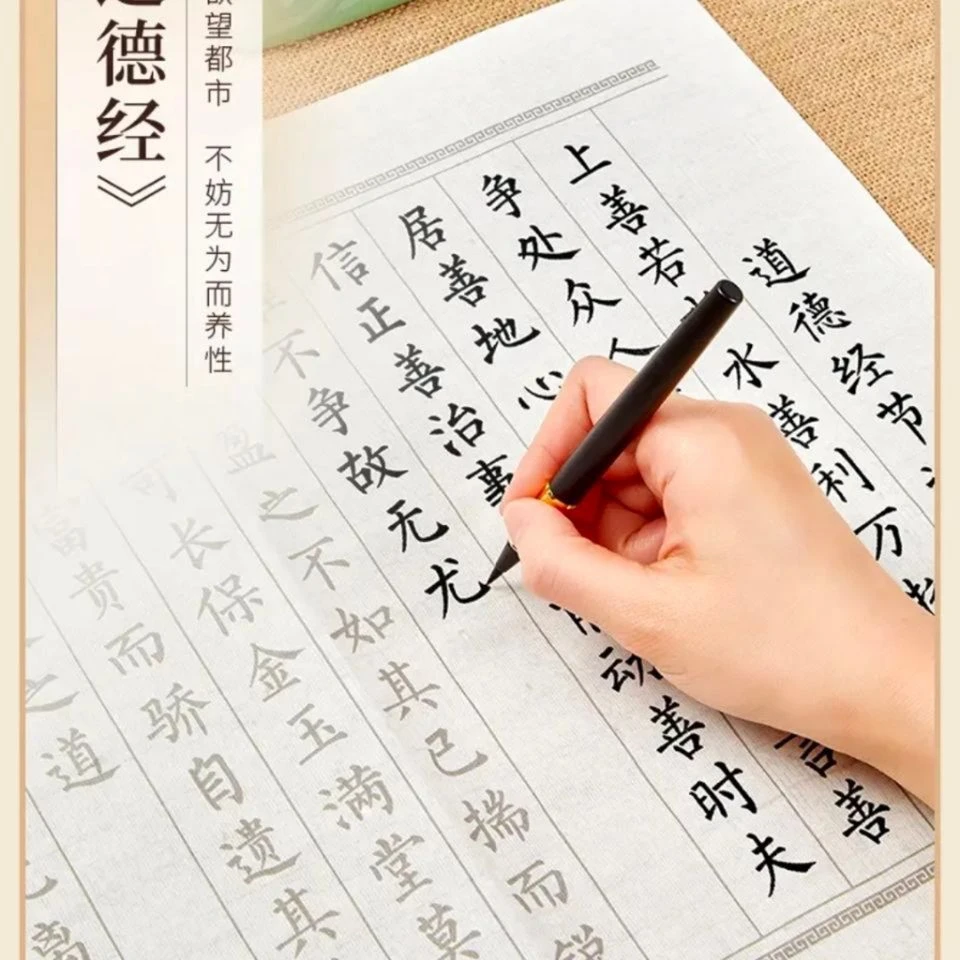 德经》
望都市 不妨无为而养性
道德经节
上善若水善利万
争处众人
居善地心言善
信正善治事动善时夫
不争故无尤
盈之不如其已揣而
可长保金玉满堂莫
富贵而骄自遗其
之道
离